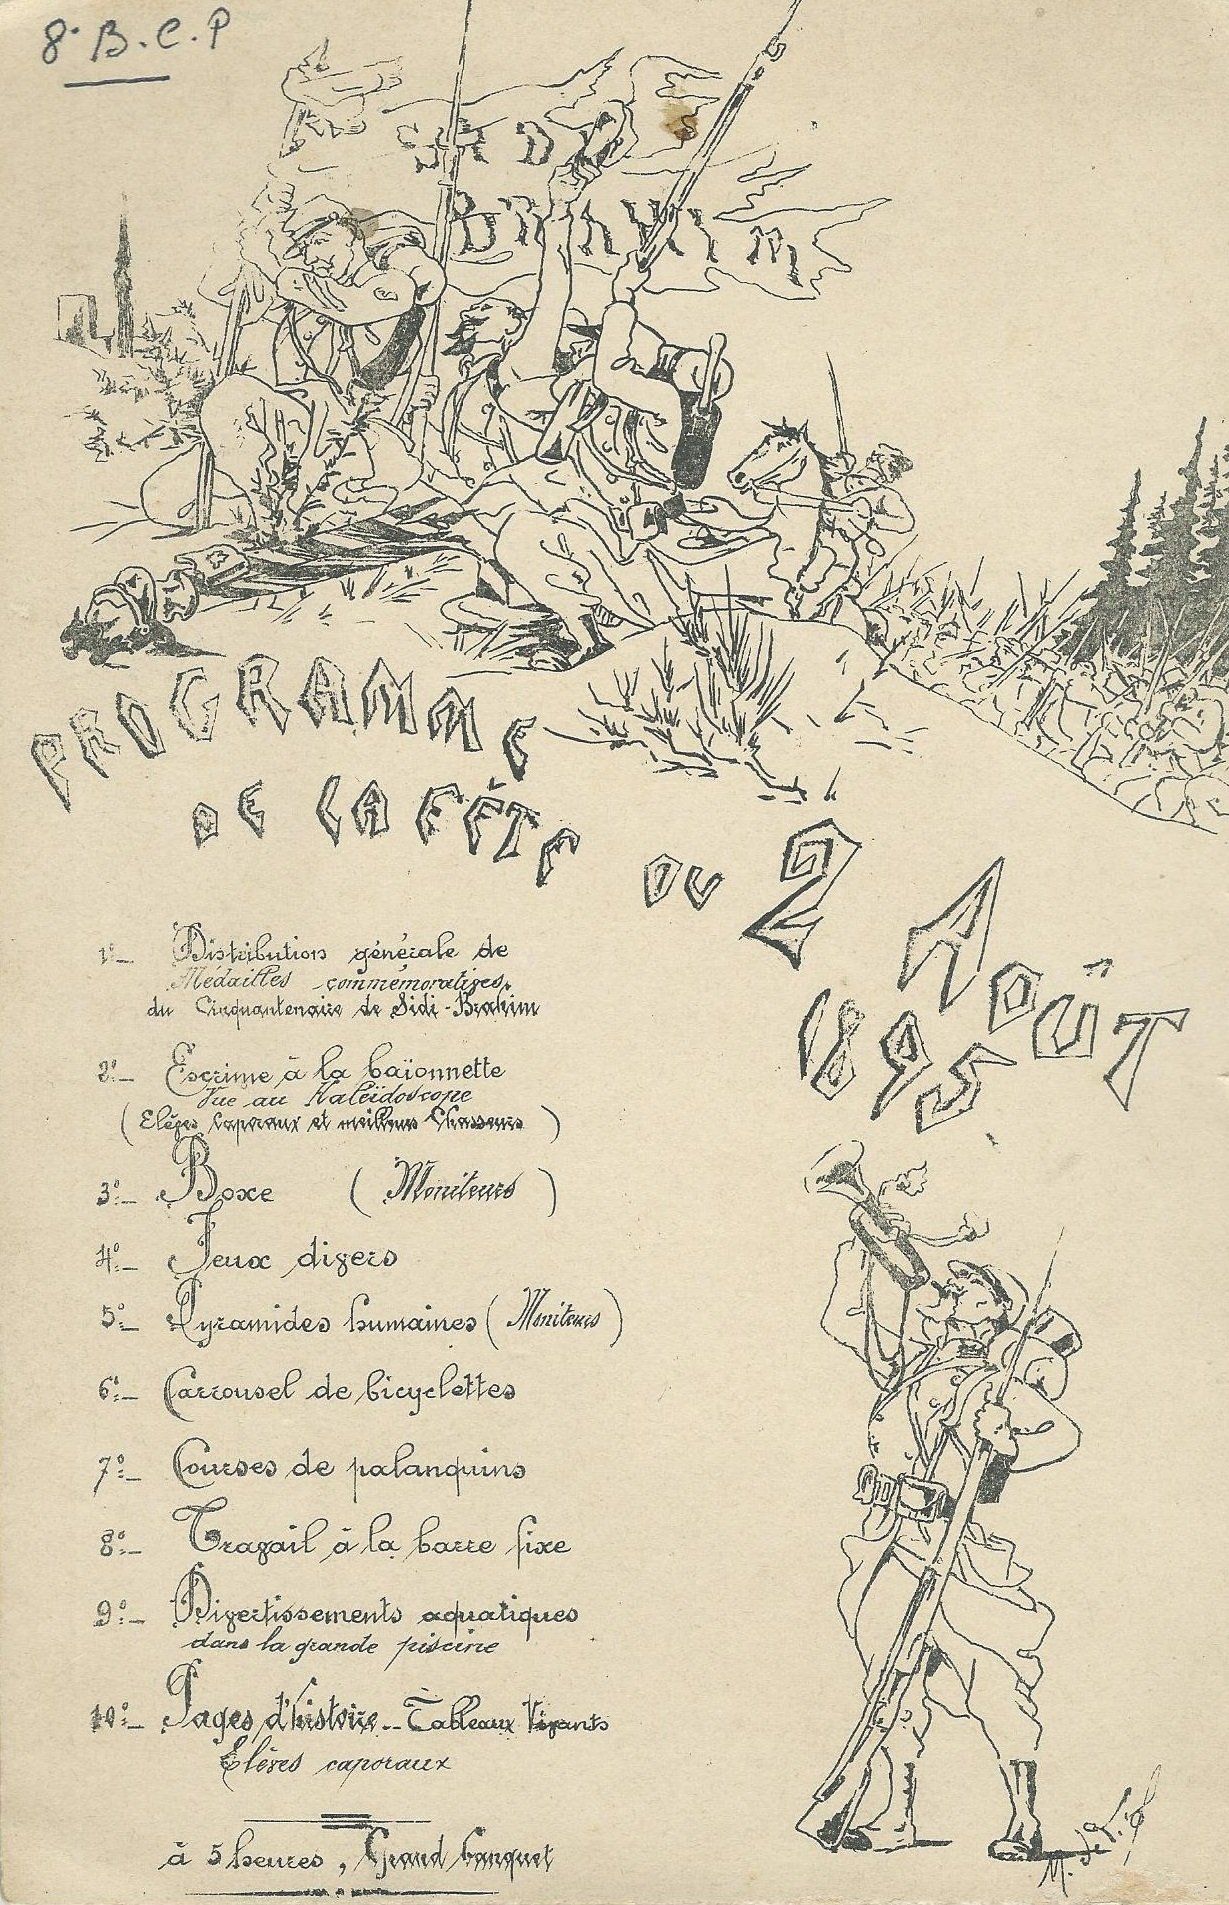 8e B.C.P
SIDI
BRAHIM
PROGRAMME
DE LA FÊTE DU 2 AOÛT
1895
1o_ Distribution générale de
Médailles commémoratives
du Cinquantenaire de Sidi-Brahim
2o_ Escrime à la baïonnette
Vue au Kaleïdoscope
(Elèves Caporaux et meilleurs Chasseurs)
3o_ Boxe (Moniteurs)
4o_ Jeux divers
5o_ Pyramides humaines (Moniteurs)
6o_ Carrousel de bicyclettes
7o_ Courses de palanquins
8o_ Travail à la barre fixe
9o_ Divertissements aquatiques
dans la grande piscine
10o_ Pages d'histoire _ Tableaux Vivants
Elèves caporaux
à 5 heures, Grand banquet